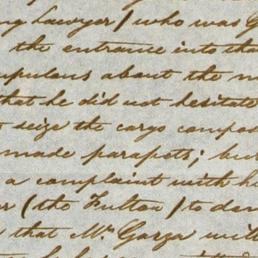 ng Lawyer) who was G
the entrance into tha
upulous about the m
that he did not hesitate
t seize the cargo compos
made parapets; bu
a complaint with h
er (the Fulton) to de
that Mr. Garza will